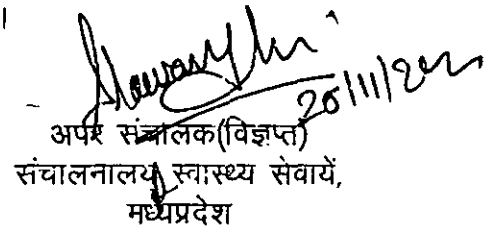 20/11/20
अपर संचालक(विज्ञप्त)
संचालनालय स्वास्थ्य सेवायें,
मध्यप्रदेश